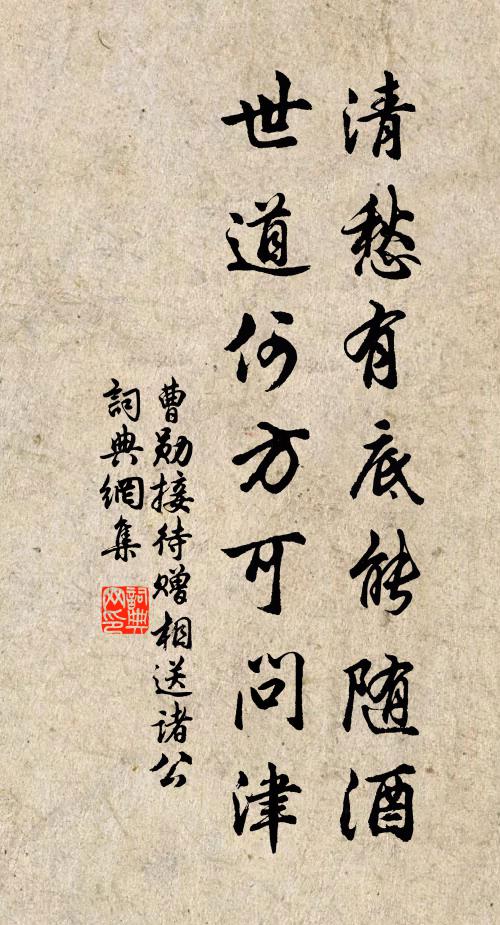 清愁有底能随酒
世道何方可問津
曹勋接待贈相送諸公
詞典網集
詞典网印